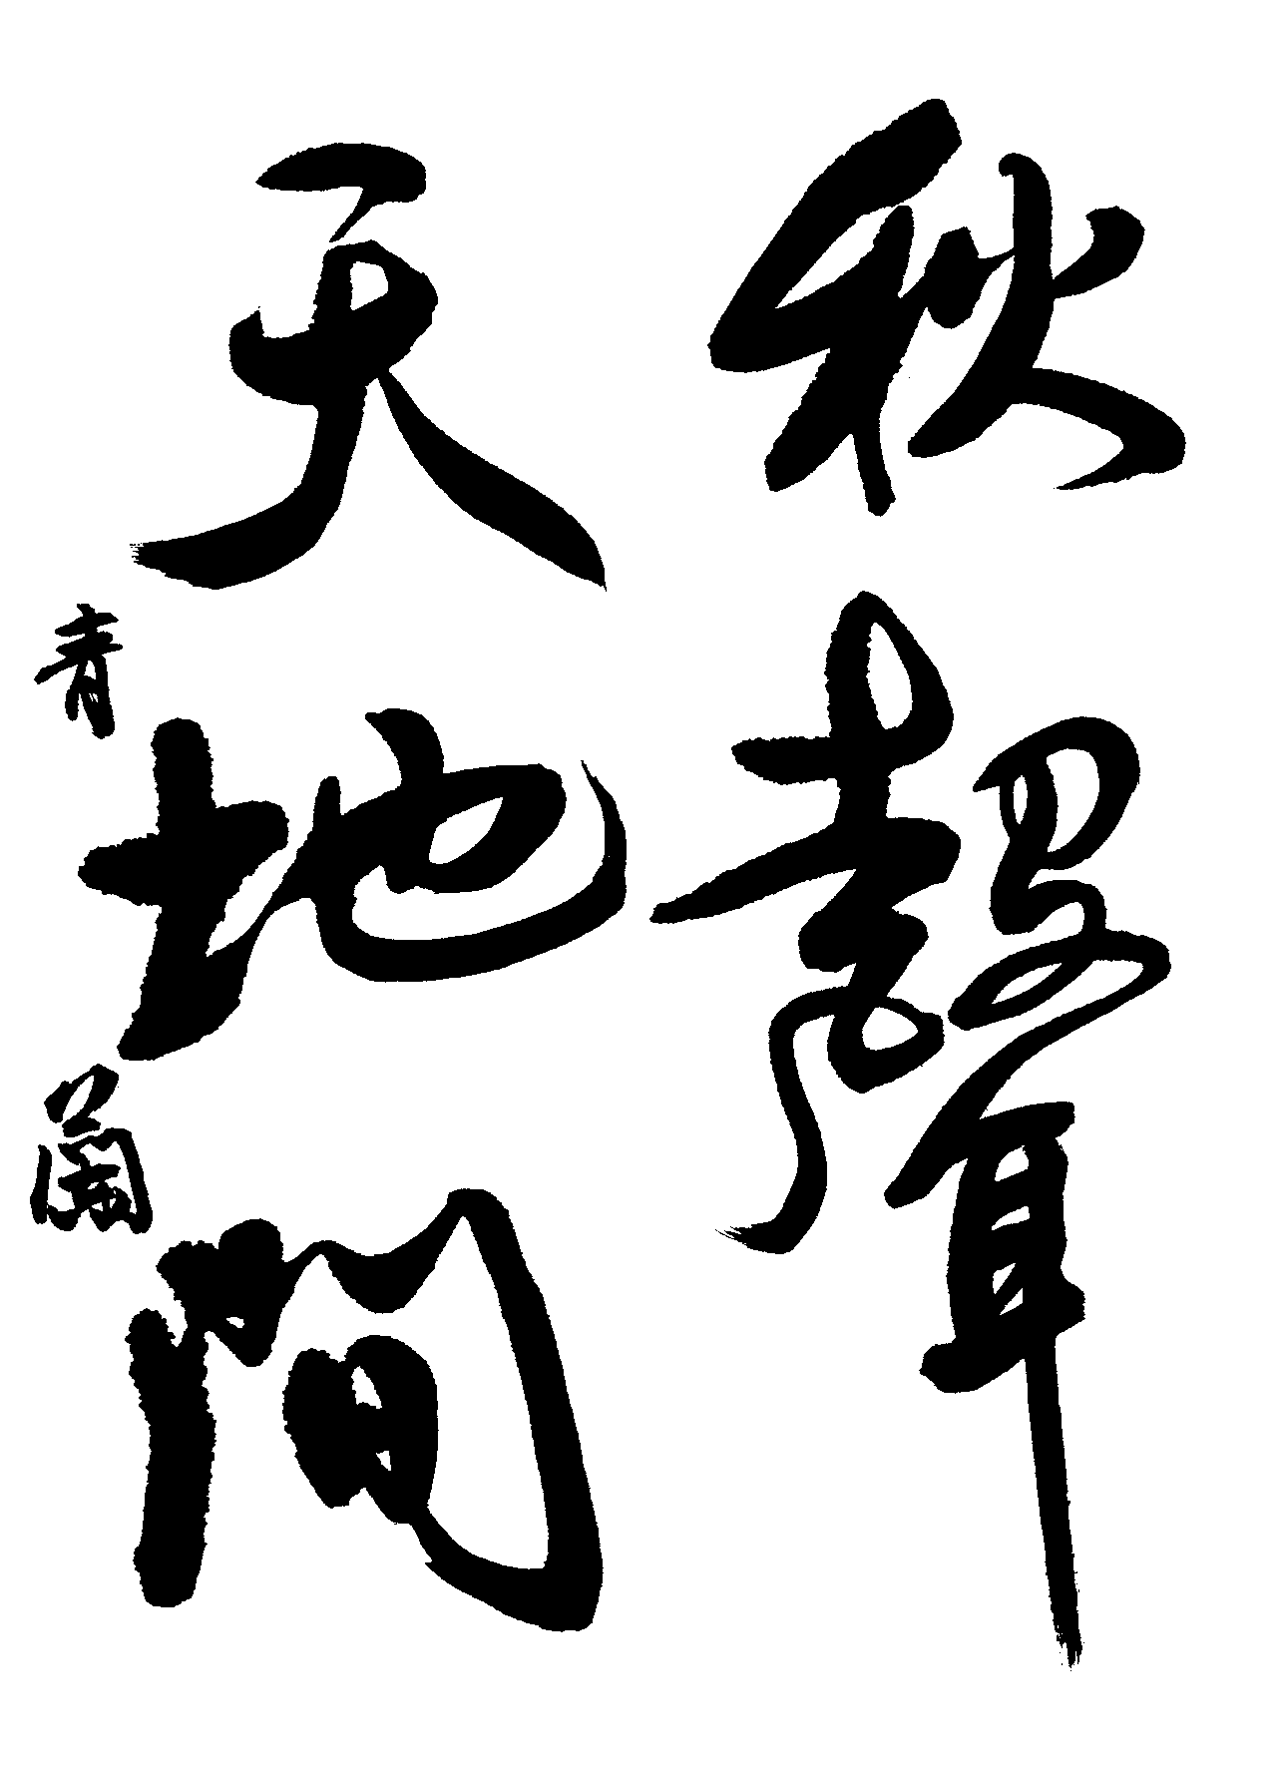 秋聲
天地間
青蘭